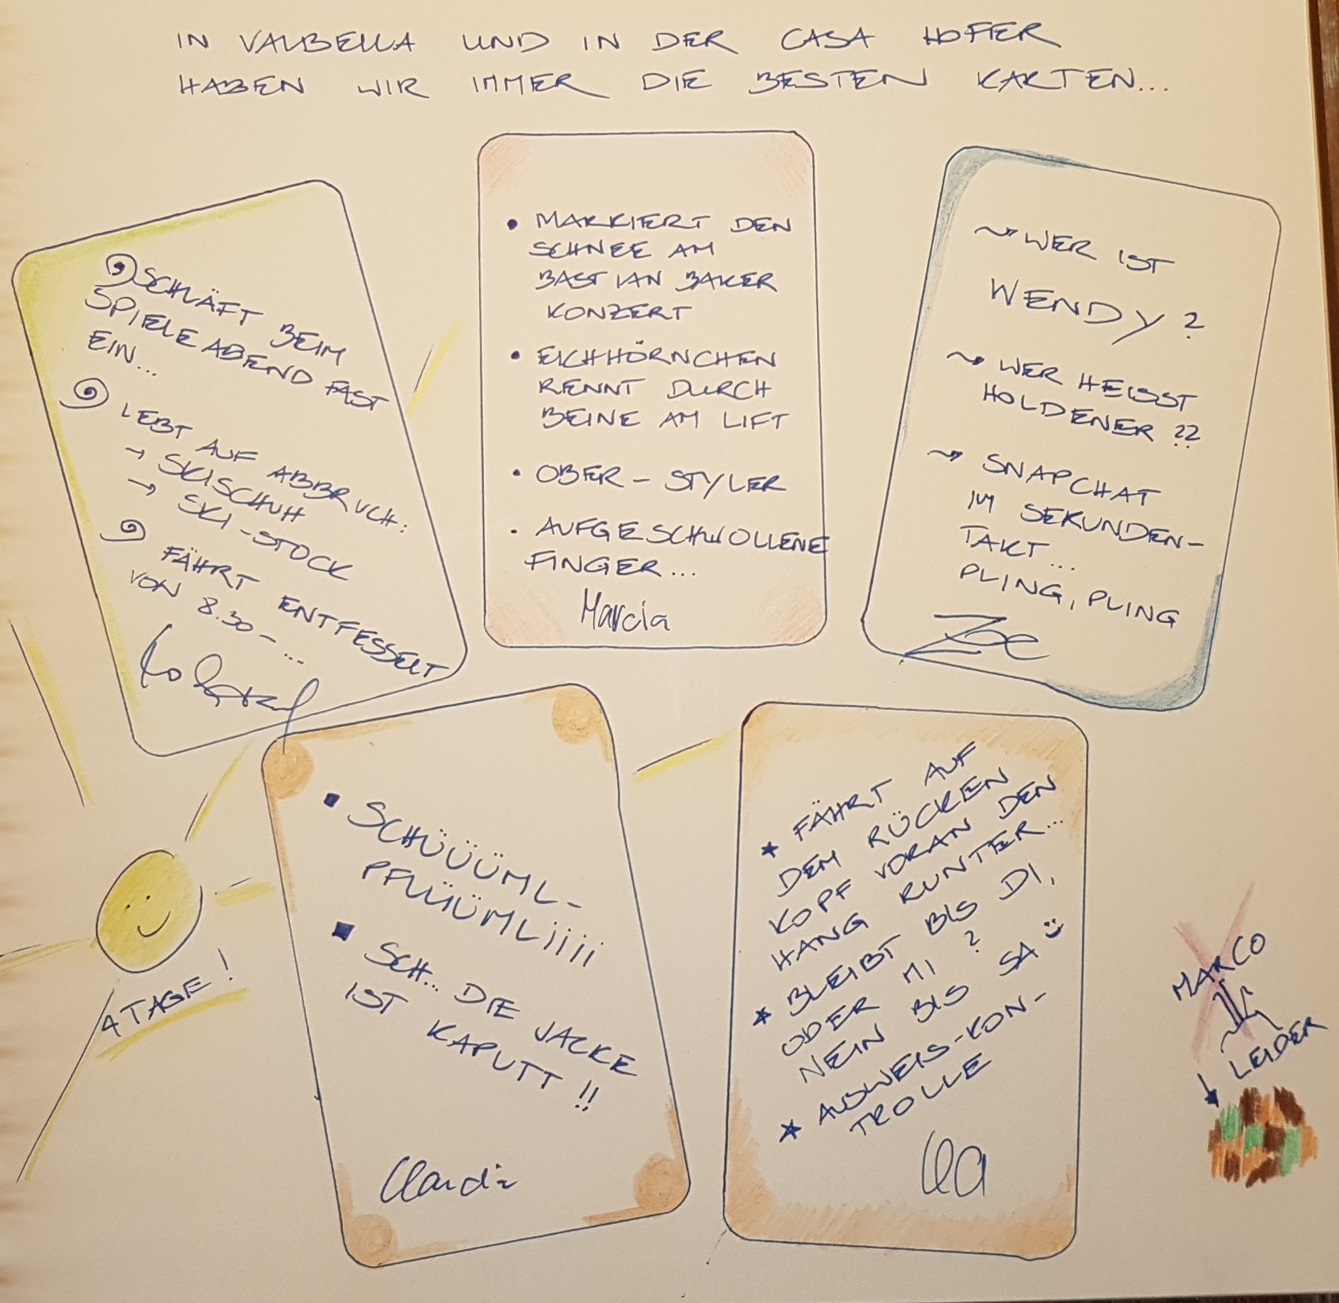 IN VALBELLA UND IN DER CASA HOFER
HABEN WIR IMMER DIE BESTEN KARTEN...
SCHLÄFT BEIM
SPIELEABEND FAST
EIN...
LEBT AUF ABBRUCH:
→ SKISCHUH
→ SKI-STOCK
FÄHRT ENTFESSELT
VON 8.30 - ...
• MARKIERT DEN
SCHNEE AM
BASTIAN BAKER
KONZERT
• EICHHÖRNCHEN
RENNT DURCH
BEINE AM LIFT
• OBER - STYLER
• AUFGESCHWOLLENE
FINGER...
Marcia
WER IST
WENDY?
WER HEISST
HOLDENER ??
SNAPCHAT
IM SEKUNDEN-
TAKT...
PLING, PLING
Zoe
▪ SCHÜÜÜML-
PFLÜÜMLiiii
▪ SCH... DIE JACKE
IST KAPUTT !!
Claudia
★ FÄHRT AUF
DEM RÜCKEN
KOPF VORAN DEN
HANG RUNTER...
★ BLEIBT BIS DI,
ODER MI ?
NEIN BIS SA
★ AUSWEIS-KON-
TROLLE
4 TAGE !
MARCO
LEIDER